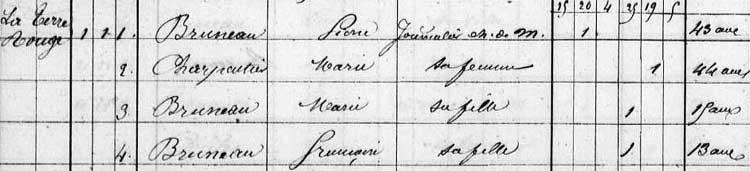 15 20 4 25 19 5
La Terre 1 1 1. Bruneau Pierre Journalier ch. de m. 1 43 ans
Rouge
2. Charpentier Marie sa femme 1 44 ans
3. Bruneau Marie sa fille 1 15 ans
4. Bruneau sa fille 1 13 ans